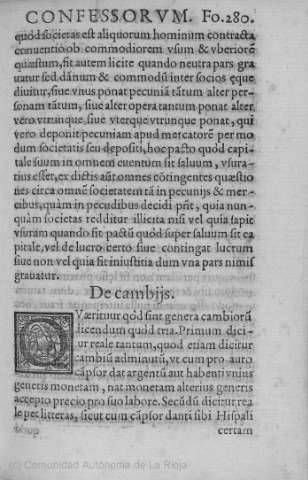 CONFESSORVM. Fo.280.
quòd societas est aliquorum hominum contracta
cõnuentio ob commodiorem vsum & vberiorẽ
quæstum, fit autem licite quando neutra pars gra
uatur sed dãnum & commodũ inter socios ęque
diuitur, siue vnus ponat pecuniã tãtum alter per-
sonam tãtum, siue alter opera tantum ponat alter
vero vtrunque, siue vterque vtrunque ponat, qui
vero deponit pecuniam apud mercatorẽ per mo
dum societatis seu depositi, hoc pacto quòd capi-
tale suum in omnem euentum sit saluum, vsura-
rius esset, ex dictis aũt omnes cõtingentes quæstio
nes circa omnẽ societatem tã in pecunijs & mer-
cibus, quàm in pecudibus decidi pñt, quia nun-
quàm societas redditur illicita nisi vel quia sapit
vsuram quando fit pactũ quòd super saluum sit ca
pitale, vel de lucro certo siue contingat lucrum
siue non vel quia fit iniustitia dum vna pars nimis
grauatur.
De cambijs.
QVæritur qòd sint genera cambiorũ
dicendum quòd tria. Primum dici-
tur reale tantum, quod etiam dicitur
cambiũ adminutũ, vt cum pro auro
cãpsor dat argentũ aut habenti vnius
generis monetam, nat monetam alterius generis
accepto precio pro suo labore. Secũdũ dicitur rea
le per litteras, sicut cum cãpsor danti sibi Hispali
certam
(c) Comunidad Autónoma de La Rioja